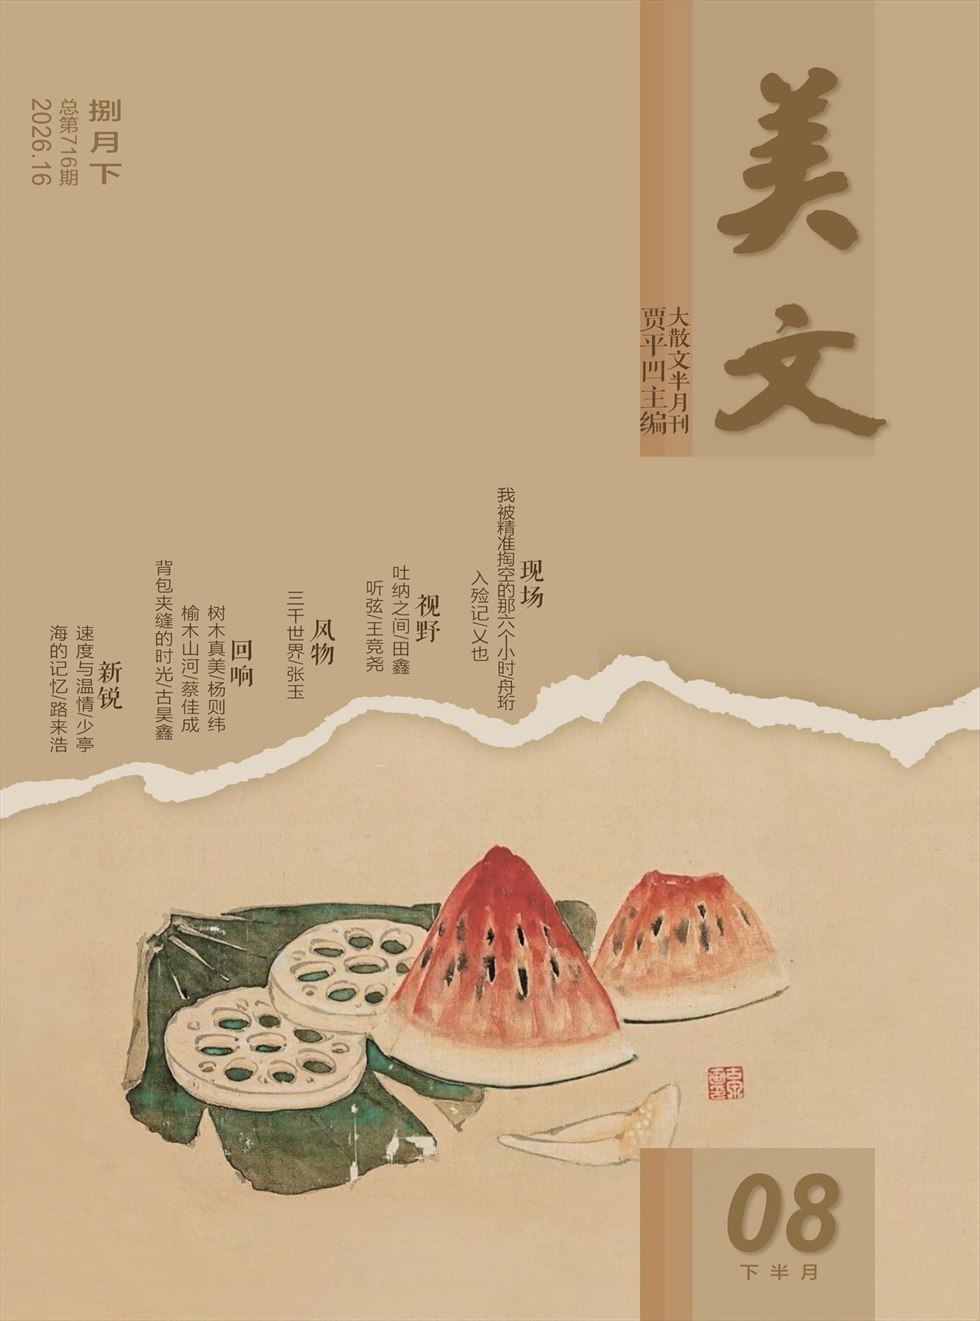 美文
大散文半月刊
贾平凹主编
捌月下
总第716期
2026.16
现场
我被精准掏空的那六个小时/舟珩
入殓记/又也
视野
吐纳之间/田鑫
听弦/王竞尧
风物
三千世界/张玉
回响
树木真美/杨则纬
榆木山河/蔡佳成
背包夹缝的时光/古昊鑫
新锐
速度与温情/少亭
海的记忆/路来浩
08
下半月